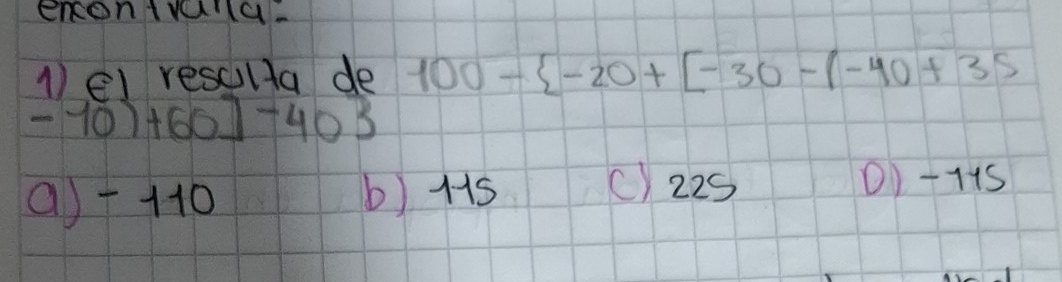 1) el resulta de 100 - {-20 + [-30 - (-40 + 35
- 10) + 60] - 40}
a) -110 b) 115 c) 225 D) -115